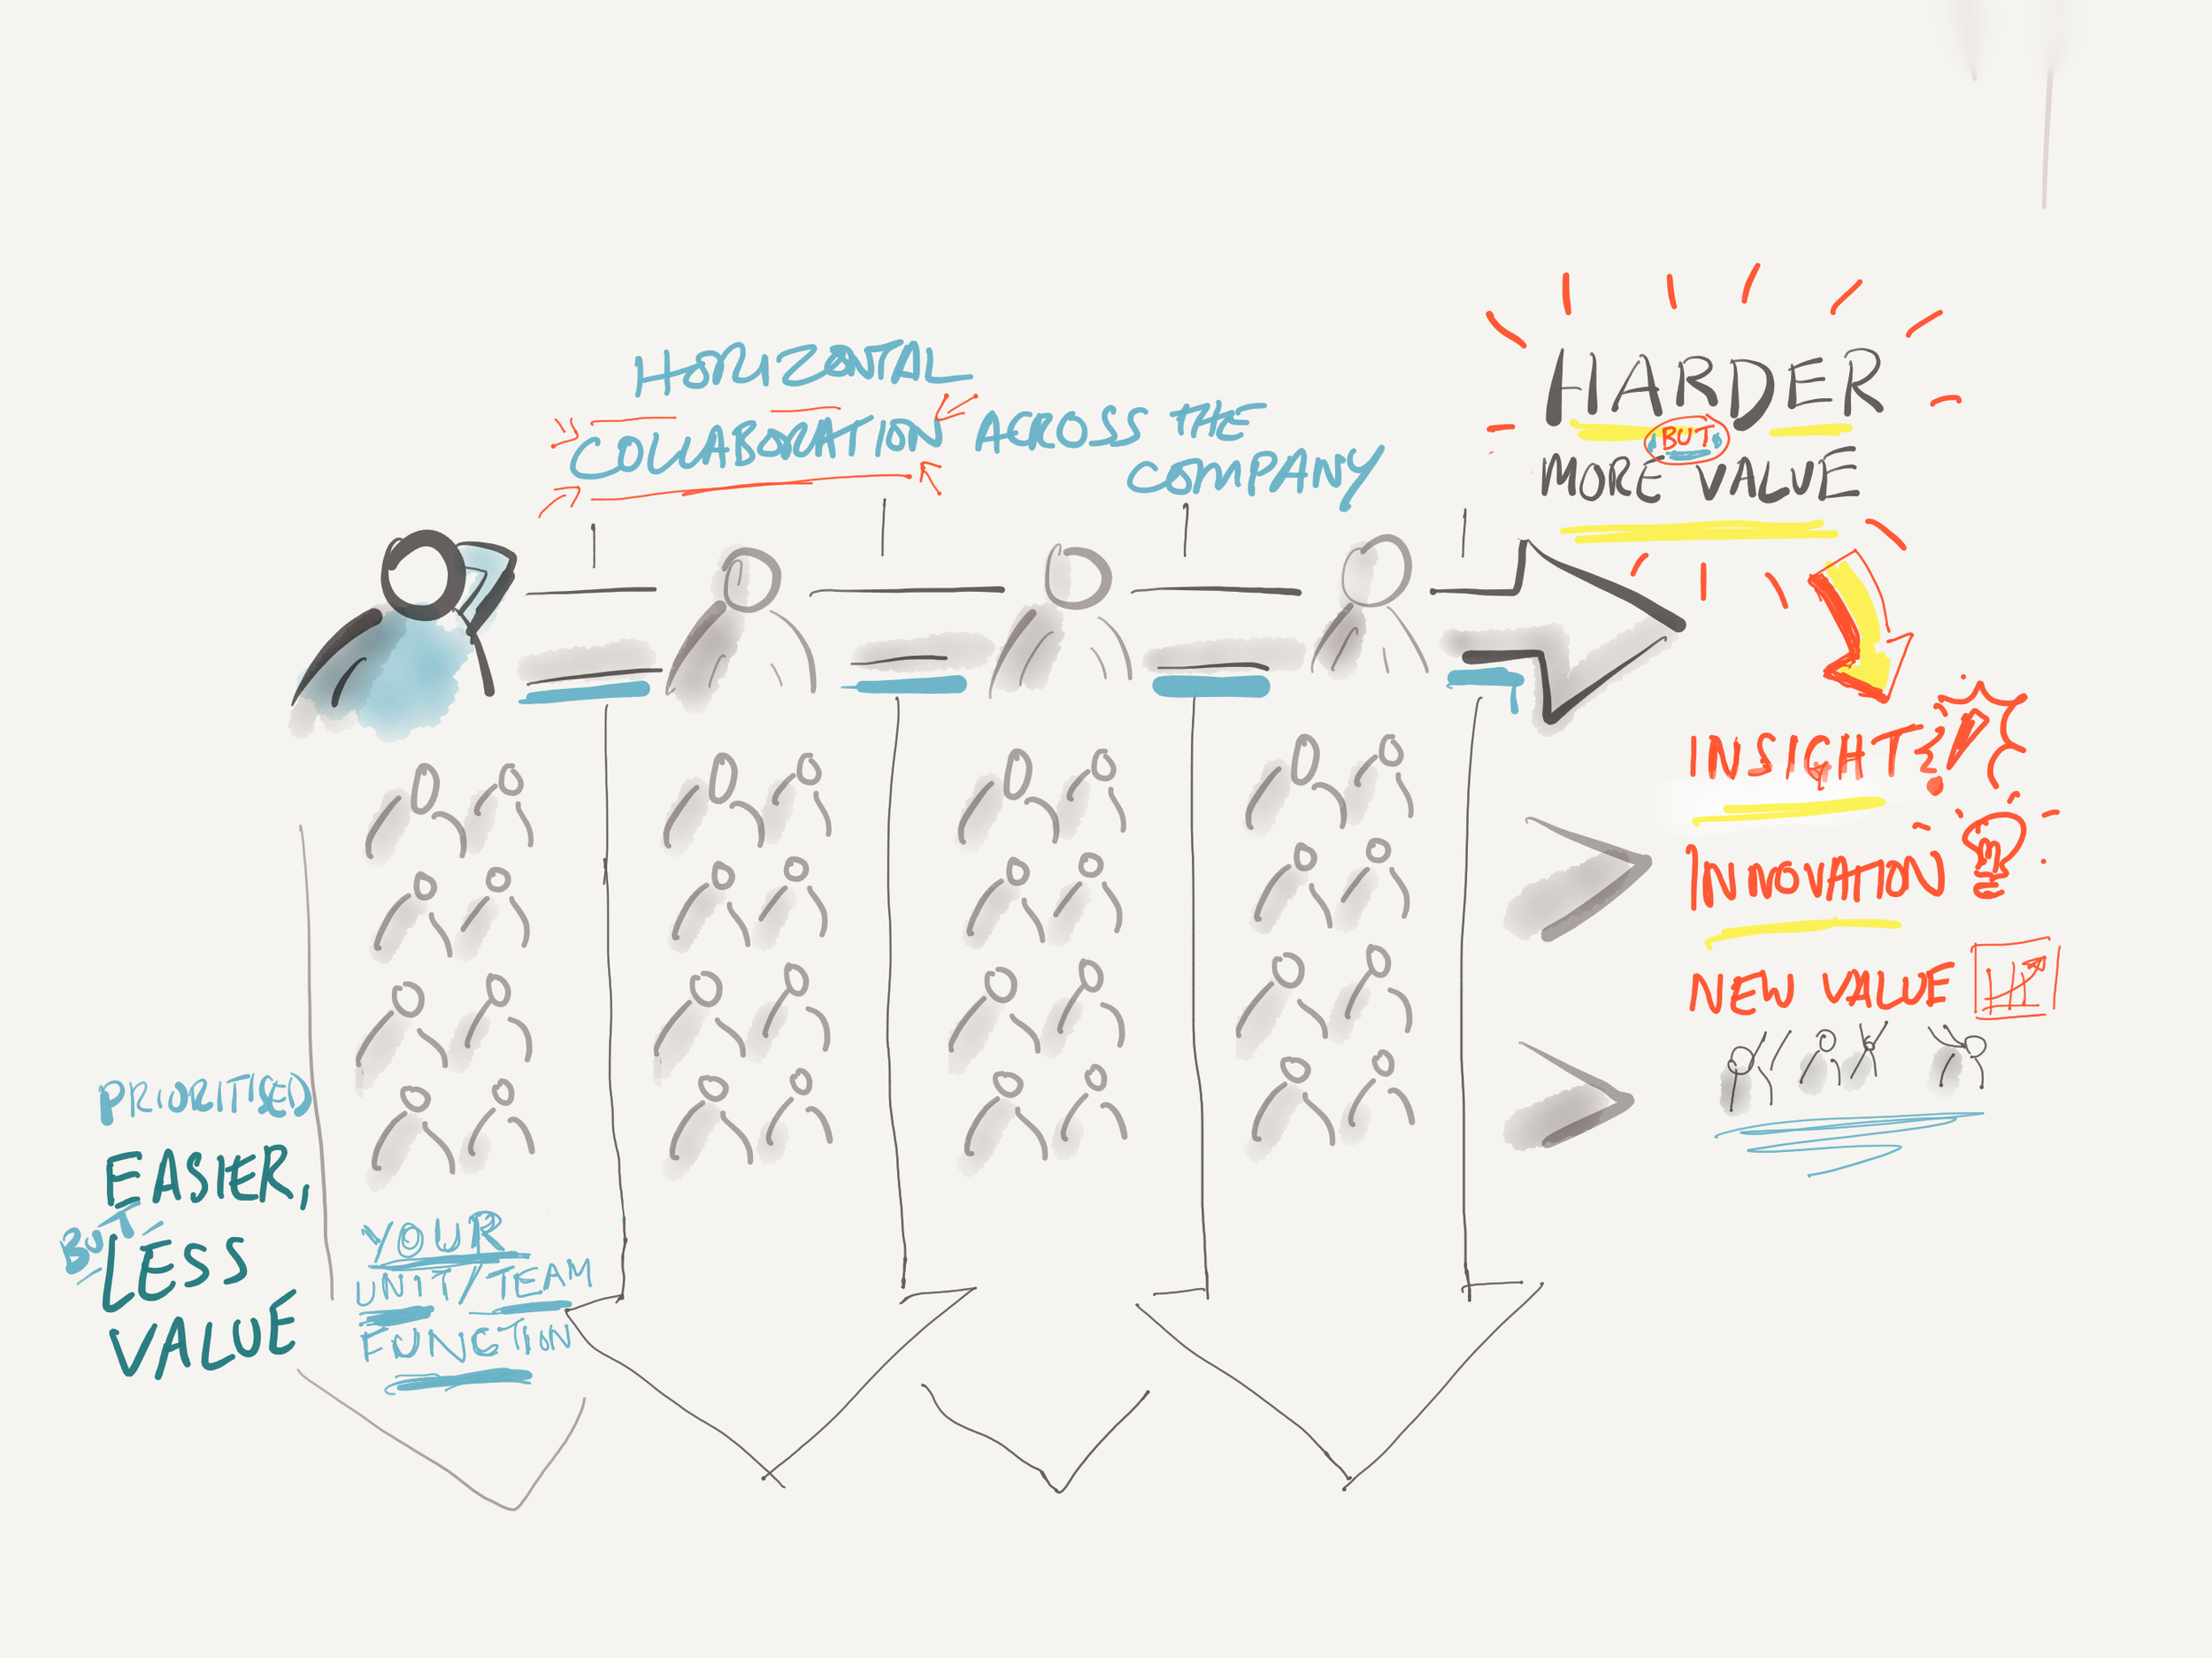 HORIZONTAL
COLLABORATION ACROSS THE
COMPANY
HARDER
BUT
MORE VALUE
INSIGHT
INNOVATION
NEW VALUE
PRIORITISED
EASIER,
BUT
LESS
VALUE
YOUR
UNIT/TEAM
FUNCTION